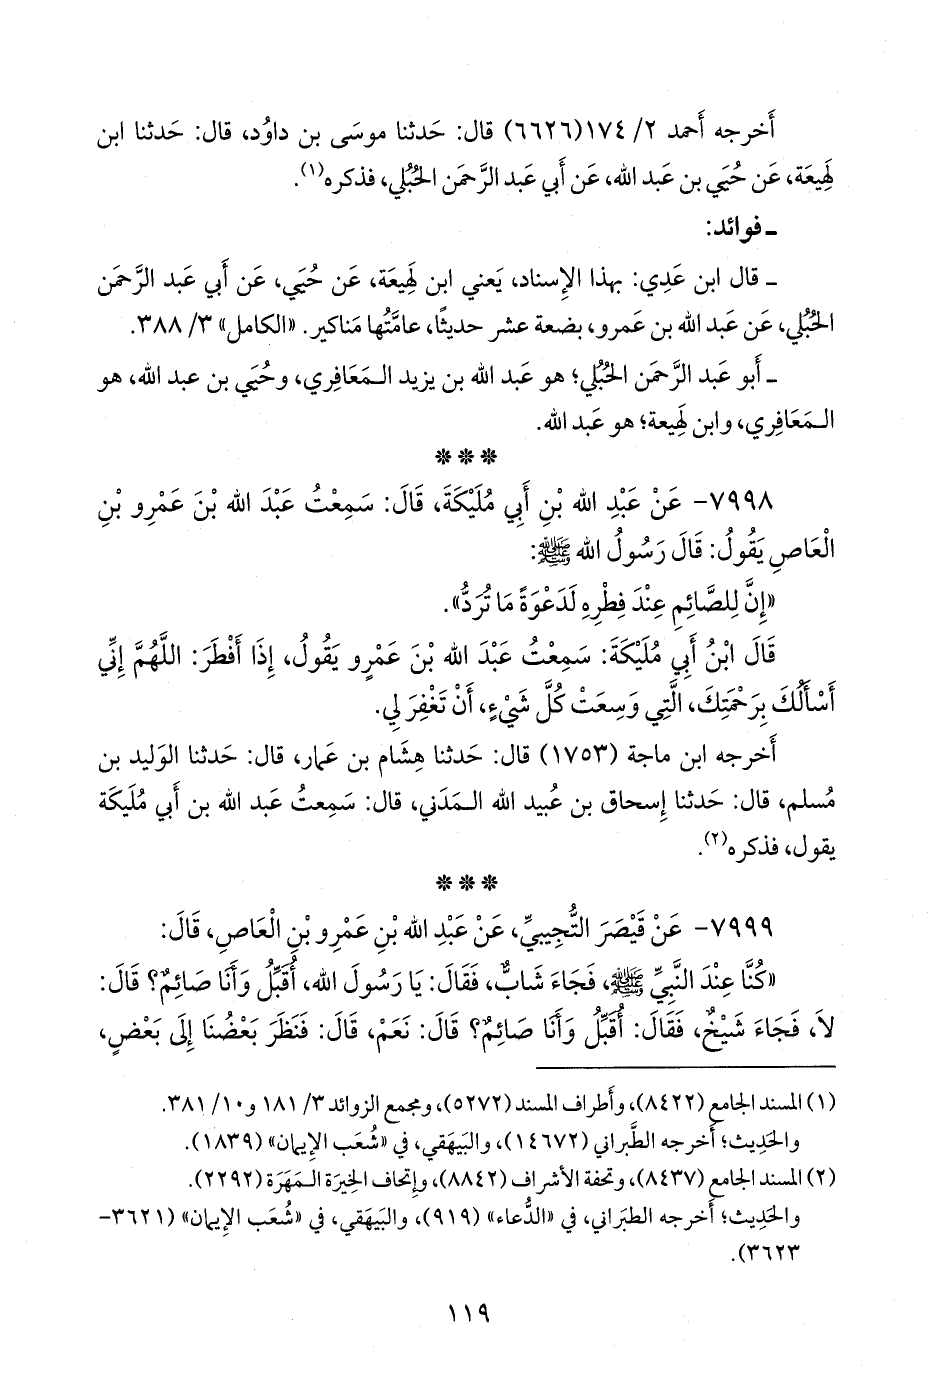 أَخرجه أَحمد ٢/ ١٧٤(٦٦٢٦) قال: حَدثنا موسَى بن داوُد، قال: حَدثنا ابن
لَهِيعَة، عَن حُيَي بن عَبد الله، عَن أَبي عَبد الرَّحمَن الحُبُلي، فذكره(١).
ـ فوائد:
ـ قال ابن عَدِي: بهذا الإِسناد، يَعني ابن لَهِيعَة، عَن حُيَي، عَن أَبي عَبد الرَّحمَن
الحُبُلي، عَن عَبد الله بن عَمرو، بضعة عشر حديثًا، عامَّتُها مَناكير. «الكامل» ٣/ ٣٨٨.
ـ أَبو عَبد الرَّحمَن الحُبُلي؛ هو عَبد الله بن يزيد الـمَعَافِري، وحُيَي بن عبد الله، هو
الـمَعَافِري، وابن لَهِيعة؛ هو عَبد الله.
* * *
٧٩٩٨- عَنْ عَبْدِ الله بْنِ أَبِي مُلَيْكَةَ، قَالَ: سَمِعْتُ عَبْدَ الله بْنَ عَمْرِو بْنِ
الْعَاصِ يَقُولُ: قَالَ رَسُولُ الله ﷺ:
«إِنَّ لِلصَّائِمِ عِنْدَ فِطْرِهِ لَدَعْوَةً مَا تُرَدُّ».
قَالَ ابْنُ أَبِي مُلَيْكَةَ: سَمِعْتُ عَبْدَ الله بْنَ عَمْرٍو يَقُولُ، إِذَا أَفْطَرَ: اللَّهُمَّ إِنِّي
أَسْأَلُكَ بِرَحْمَتِكَ، الَّتِي وَسِعَتْ كُلَّ شَيْءٍ، أَنْ تَغْفِرَ لِي.
أَخرجه ابن ماجة (١٧٥٣) قال: حَدثنا هِشَام بن عَمار، قال: حَدثنا الوَليد بن
مُسلم، قال: حَدثنا إِسحاق بن عُبيد الله الـمَدَني، قال: سَمِعتُ عَبد الله بن أَبي مُلَيكَة
يقول، فذكره(٢).
* * *
٧٩٩٩- عَنْ قَيْصَرَ التُّجِيبِيِّ، عَنْ عَبْدِ الله بْنِ عَمْرِو بْنِ الْعَاصِ، قَالَ:
«كُنَّا عِنْدَ النَّبِيِّ ﷺ، فَجَاءَ شَابٌّ، فَقَالَ: يَا رَسُولَ الله، أُقَبِّلُ وَأَنَا صَائِمٌ؟ قَالَ:
لاَ، فَجَاءَ شَيْخٌ، فَقَالَ: أُقَبِّلُ وَأَنَا صَائِمٌ؟ قَالَ: نَعَمْ، قَالَ: فَنَظَرَ بَعْضُنَا إِلَى بَعْضٍ،
(١) المسند الجامع (٨٤٢٢)، وأَطراف المسند (٥٢٧٢)، ومجمع الزوائد ٣/ ١٨١ و١٠/ ٣٨١.
والحَدِيث؛ أَخرجه الطَّبراني (١٤٦٧٢)، والبَيهَقي، في «شُعَب الإِيمان» (١٨٣٩).
(٢) المسند الجامع (٨٤٣٧)، وتحفة الأَشراف (٨٨٤٢)، وإِتحاف الخِيرَة الـمَهَرَة (٢٢٩٢).
والحَدِيث؛ أَخرجه الطبَراني، في «الدُّعاء» (٩١٩)، والبَيهَقي، في «شُعَب الإِيمان» (٣٦٢١-
٣٦٢٣).
١١٩